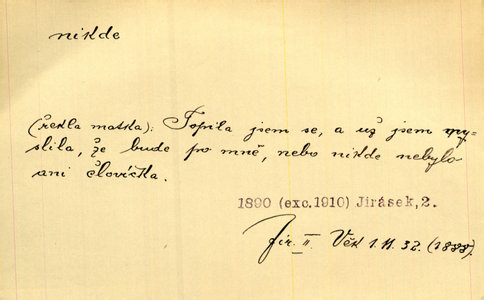 nikde
(řekla matka): Topila jsem se, a už jsem my-
slila, že bude po mně, nebo nikde nebylo
ani človíčka.
1890 (exc.1910) Jirásek,2.
Jir. II. Věk 1.11.32. (1888).